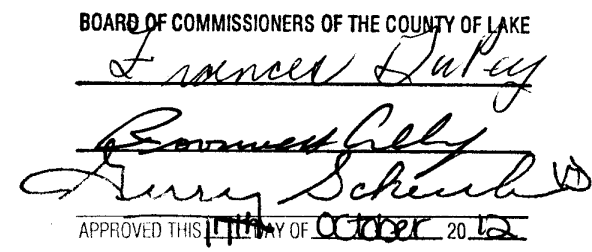 BOARD OF COMMISSIONERS OF THE COUNTY OF LAKE
Frances DuPey
Gerry Scheub
APPROVED THIS 17th DAY OF October 20 12